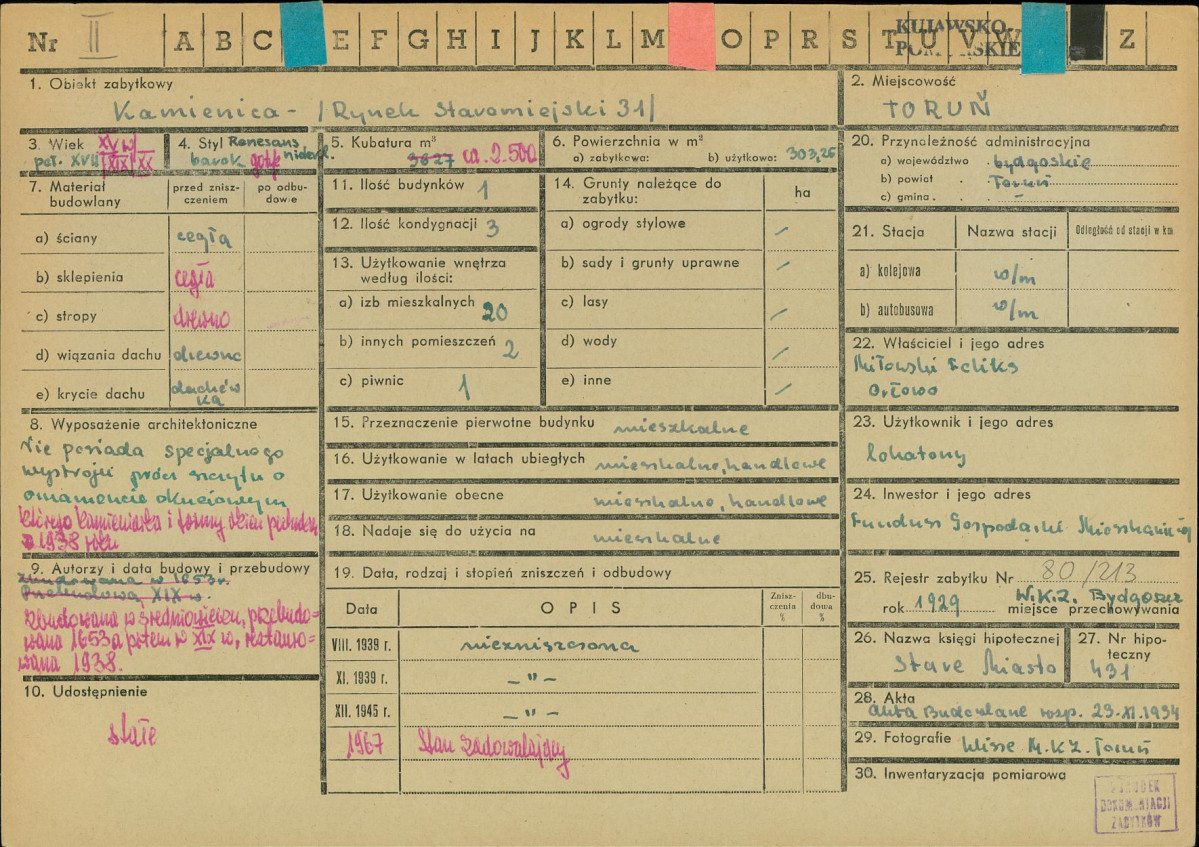 Nr II A B C E F G H I J K L M O P R S T U V W Z
KUJAWSKO
1. Obiekt zabytkowy
Kamienica - /Rynek Staromiejski 31/
2. Miejscowość
TORUŃ
3. Wiek XV w
poł. XVII XIX XX
4. Styl Renesans
barok gotyk niderl.
5. Kubatura m³
3627 ca. 2.500
6. Powierzchnia w m²
a) zabytkowa: b) użytkowa: 303,26
20. Przynależność administracyjna
a) województwo bydgoskie
b) powiat Toruń
c) gmina –
7. Materiał budowlany
przed zniszczeniem
po odbudowie
a) ściany cegła
b) sklepienia cegła
c) stropy drewno
d) wiązania dachu drewno
e) krycie dachu dachówka
11. Ilość budynków 1
12. Ilość kondygnacji 3
13. Użytkowanie wnętrza
według ilości:
a) izb mieszkalnych 20
b) innych pomieszczeń 2
c) piwnic 1
14. Grunty należące do
zabytku:
ha
a) ogrody stylowe –
b) sady i grunty uprawne –
c) lasy –
d) wody –
e) inne –
21. Stacja Nazwa stacji Odległość od stacji w km
a) kolejowa w/m
b) autobusowa w/m
22. Właściciel i jego adres
Miłowski Feliks
Orłowo
8. Wyposażenie architektoniczne
Nie posiada specjalnego
wystroju prócz szczytu o
ornamencie okuciowym
którego kamieniarka i formy okien
w 1938 roku
9. Autorzy i data budowy i przebudowy
Zbudowana w 1653 r.
Przebudowa XIX w.
Zbudowana w średniowieczu, przebudo=
wana 1653 a potem w XIX w, restauro=
wana 1938.
10. Udostępnienie
stałe
15. Przeznaczenie pierwotne budynku mieszkalne
16. Użytkowanie w latach ubiegłych mieszkalno, handlowe
17. Użytkowanie obecne mieszkalno, handlowe
18. Nadaje się do użycia na mieszkalne
19. Data, rodzaj i stopień zniszczeń i odbudowy
Data OPIS Zniszczenia % dbudowia %
VIII. 1939 r. niezniszczona
XI. 1939 r. – " –
XII. 1945 r. – " –
1967 Stan zadowalający
23. Użytkownik i jego adres
lokatorzy
24. Inwestor i jego adres
Fundusz Gospodarki Mieszkaniowej
25. Rejestr zabytku Nr 80/213
W.K.Z. Bydgoszcz
rok 1929 miejsce przechowywania
26. Nazwa księgi hipotecznej
Stare Miasto
27. Nr hipoteczny
431
28. Akta
Akta Budowlane rozp. 23-XI.1934
29. Fotografie klisze M.K.Z. Toruń
30. Inwentaryzacja pomiarowa
OŚRODEK
DOKUMENTACJI
ZABYTKÓW